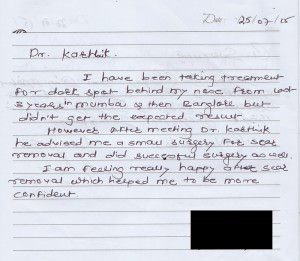 Date: 25/07/15
Dr. Karthik.
I have been taking treatment
For dark spot behind my neck from last
3 years in mumbai & then Banglore but
didn't get the expected result
However after meeting Dr. Karthik
he advised me a small surgery for scar
removal and did successful surgery as well.
I am feeling really happy after scar
removal which helped me to be more
confident.